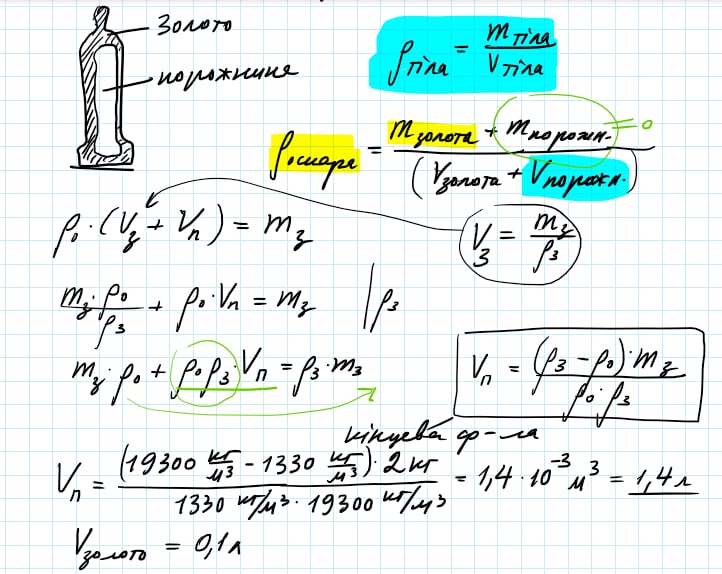 золото
порожнина
ρ тіла = m тіла / V тіла
ρ оскара = (m золота + m порожн.) / (V золота + V порожн.) = 0
ρ₀ · (V₃ + Vп) = m₃
V₃ = m₃ / ρ₃
m₃ · ρ₀ / ρ₃ + ρ₀ · Vп = m₃ | ρ₃
m₃ · ρ₀ + ρ₀ ρ₃ · Vп = ρ₃ · m₃
Vп = (ρ₃ - ρ₀) · m₃ / ρ₀ · ρ₃
кінцева ф-ла
Vп = (19300 кг/м³ - 1330 кг/м³) · 2 кг / 1330 кг/м³ · 19300 кг/м³ = 1,4 · 10⁻³ м³ = 1,4 л
V золото = 0,1 л